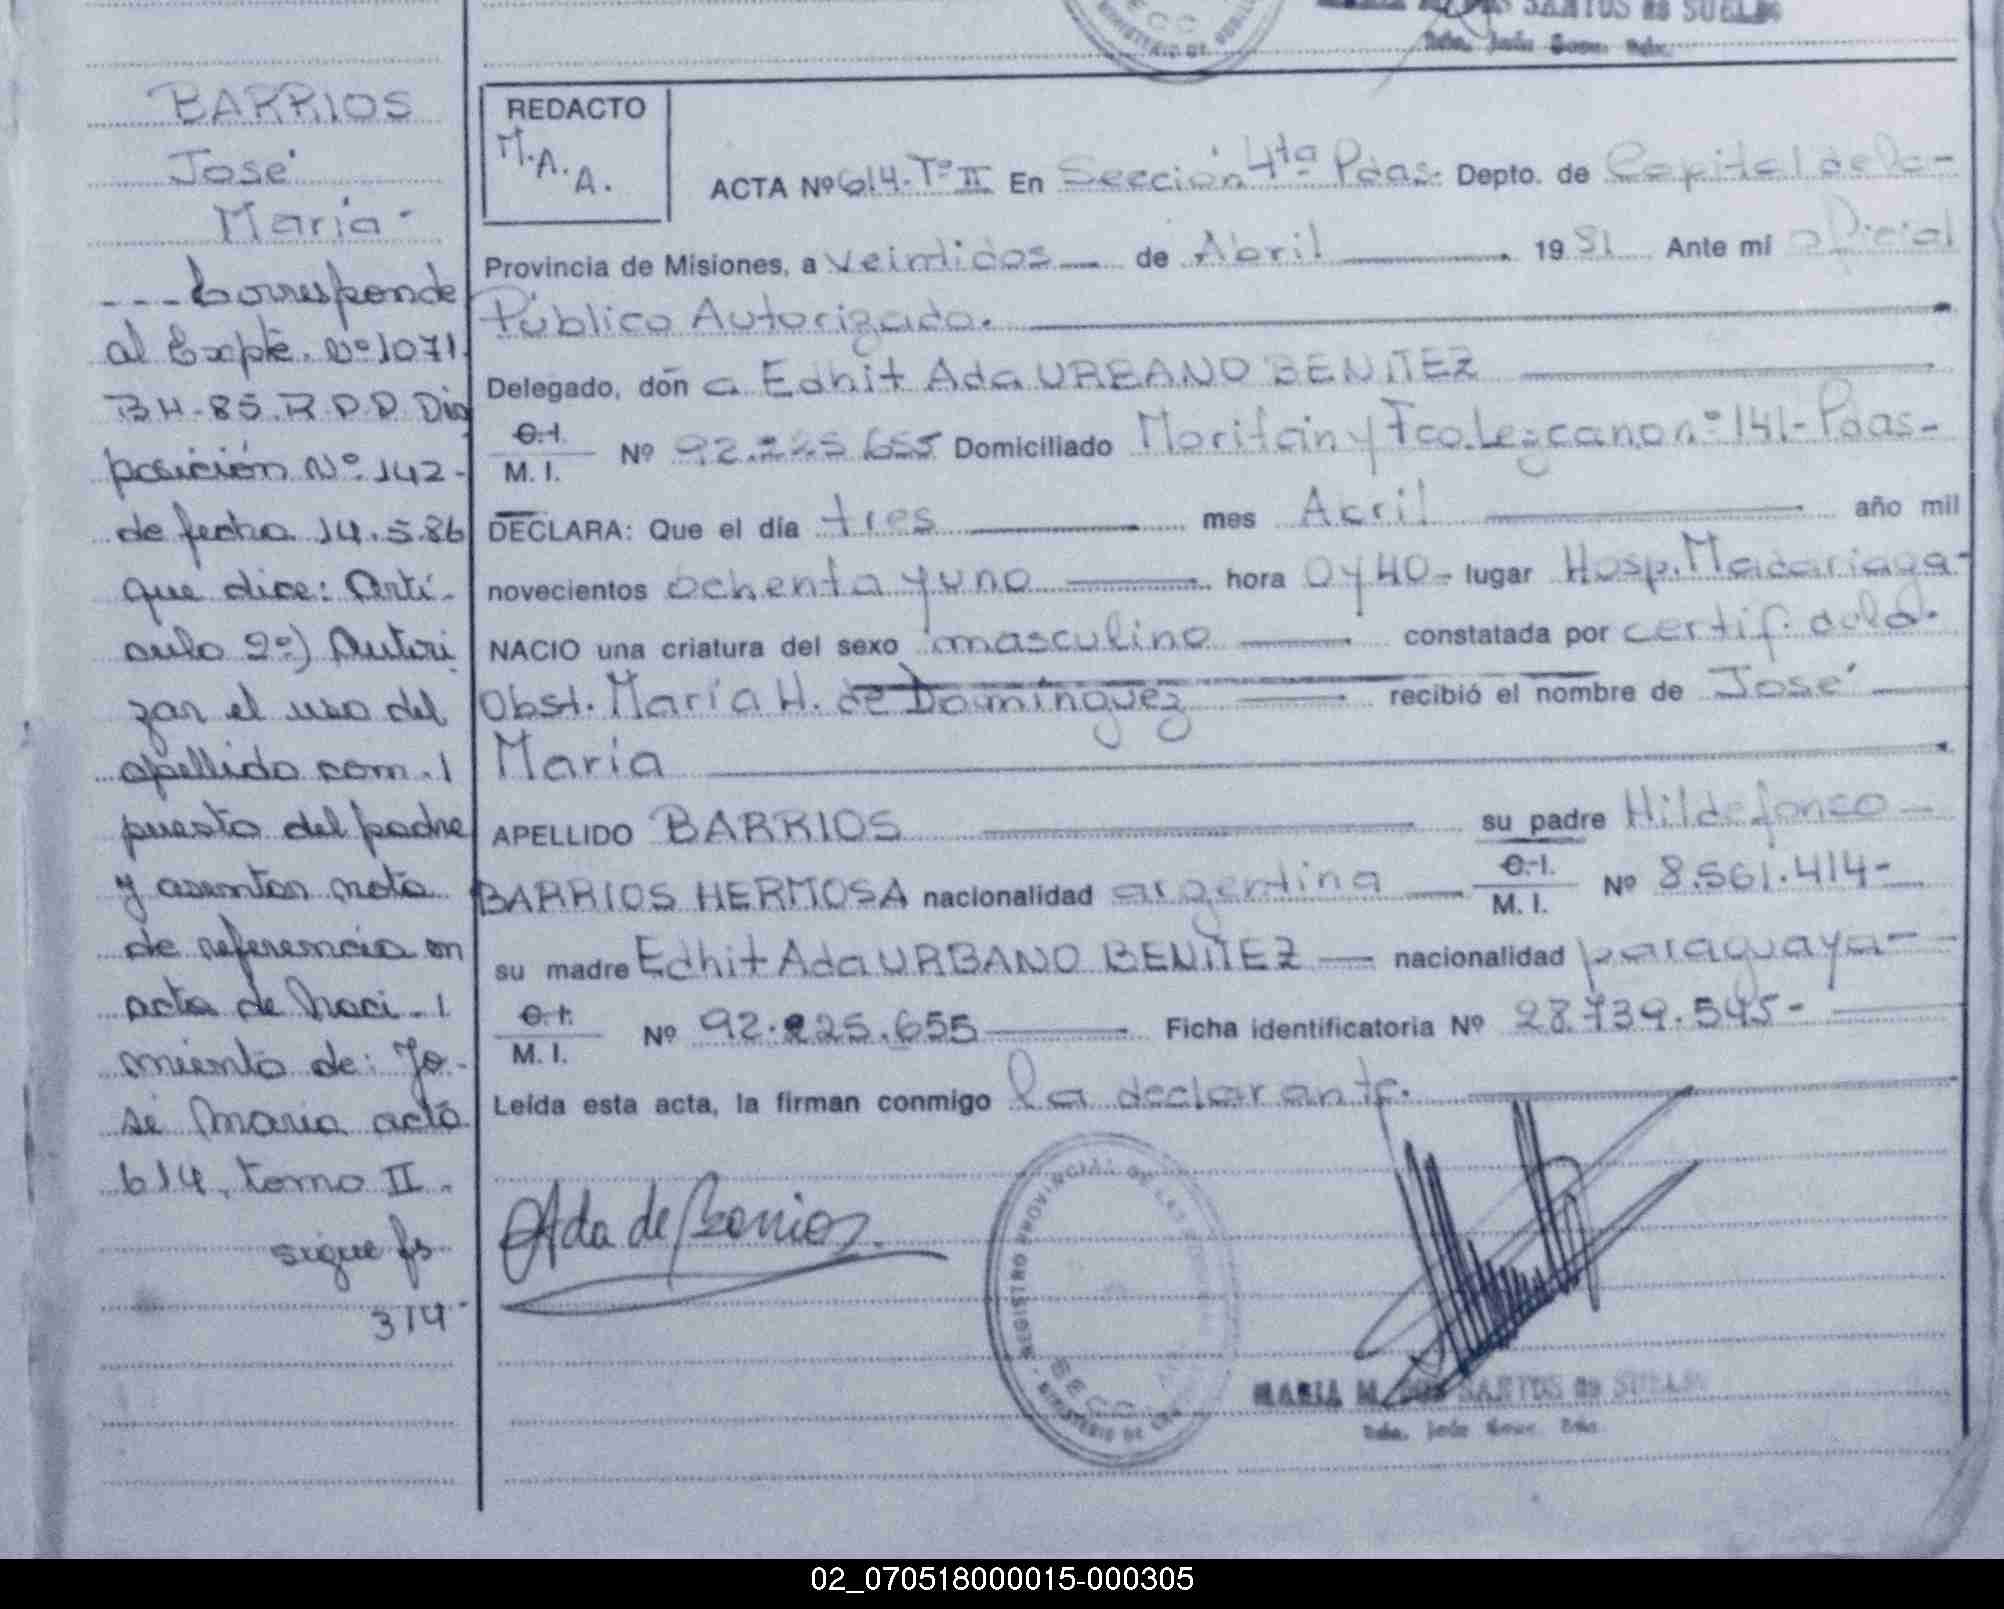 SANTOS de SUELDO
BARRIOS
José
María-
REDACTO
M.A.A.
ACTA Nº 614-Tº II En Sección 4ta Pdas. Depto. de Capital de la-
Provincia de Misiones, a veintidos de Abril 1981 Ante mí oficial
Público Autorizado.
Delegado, don a Edhit Ada URBANO BENITEZ
C.I. M. I. Nº 92.225.655 Domiciliado Moritan y Fco. Lezcano nº 141-Pdas-
DECLARA: Que el día tres mes Abril año mil
novecientos ochenta y uno hora 0 y 40- lugar Hosp. Madariaga-
NACIO una criatura del sexo masculino constatada por certif. de la
Obst. María H. de Domínguez recibió el nombre de José
María
APELLIDO BARRIOS su padre Hildefonso
BARRIOS HERMOSA nacionalidad argentina C.I. M. I. Nº 8.561.414-
su madre Edhit Ada URBANO BENITEZ nacionalidad paraguaya-
C.I. M. I. Nº 92.225.655 Ficha identificatoria Nº 28.739.545-
Leída esta acta, la firman conmigo la declarante.
---Corresponde
al Expte. Nº 1071
BH-85.R P.P Dis
posición Nº. 142-
de fecha 14.5.86
que dice: Artí-
culo 2º) Autori
zar el uso del
apellido com-
puesto del padre
y asentar nota
de referencia en
acta de Naci-
miento de: Jo-
sé María acta
614, tomo II.
sigue fs
314-
Ada de Barrios.
REGISTRO PROVINCIAL DE LAS PERSONAS
SECC
MINISTERIO DE
MARIA M. DOS SANTOS de SUELDO
02_070518000015-000305